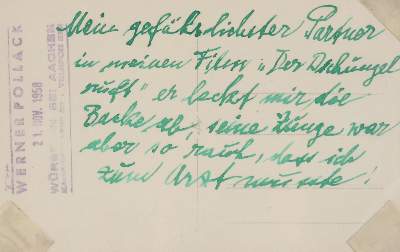 Mein gefährlichster Partner
in meinen Film „Der Dschungel
ruft" er leckt mir die
Backe ab, seine Zunge war
aber so rauh, dass ich
zum Arzt musste!
WERNER POLLACK
21. NOV. 1958
BEI AACHEN